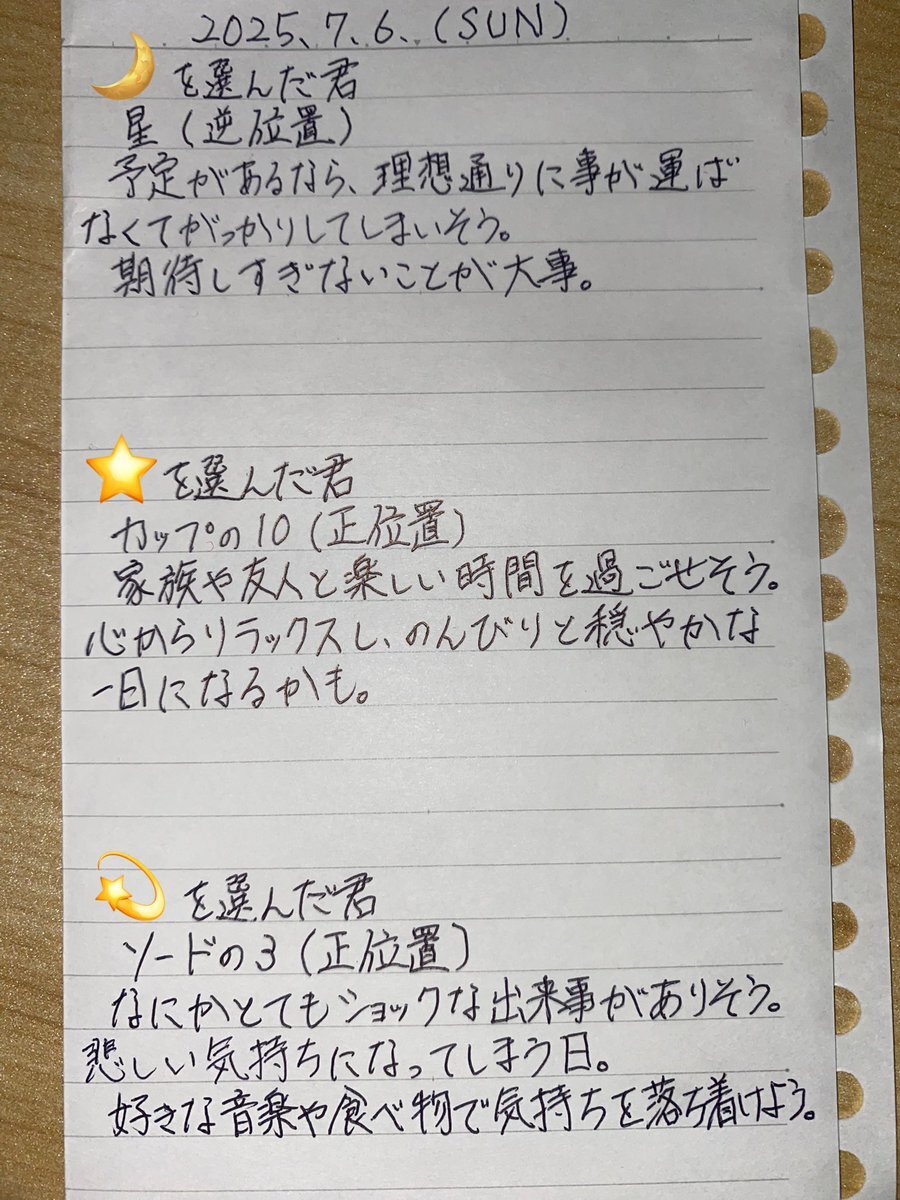 2025、7、6、(SUN)
🌙を選んだ君
星(逆位置)
予定があるなら、理想通りに事が運ば
なくてがっかりしてしまいそう。
期待しすぎないことが大事。
⭐を選んだ君
カップの10(正位置)
家族や友人と楽しい時間を過ごせそう。
心からリラックスし、のんびりと穏やかな
一日になるかも。
💫を選んだ君
ソードの3(正位置)
なにかとてもショックな出来事がありそう。
悲しい気持ちになってしまう日。
好きな音楽や食べ物で気持ちを落ち着けよう。